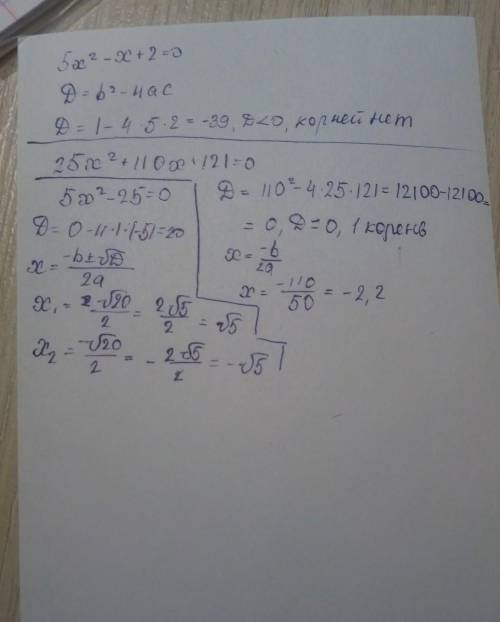 5x² - x + 2 = 0
D = b² - 4ac
D = 1 - 4 · 5 · 2 = -39, D < 0, корней нет
25x² + 110x + 121 = 0
D = 110² - 4 · 25 · 121 = 12100 - 12100 =
= 0, D = 0, 1 корень
x = -b/2a
x = -110/50 = -2,2
5x² - 25 = 0
D = 0 - 4 · 1 · (-5) = 20
x = -b ± √D/2a
x₁ = √20/2 = 2√5/2 = √5
x₂ = -√20/2 = - 2√5/2 = -√5